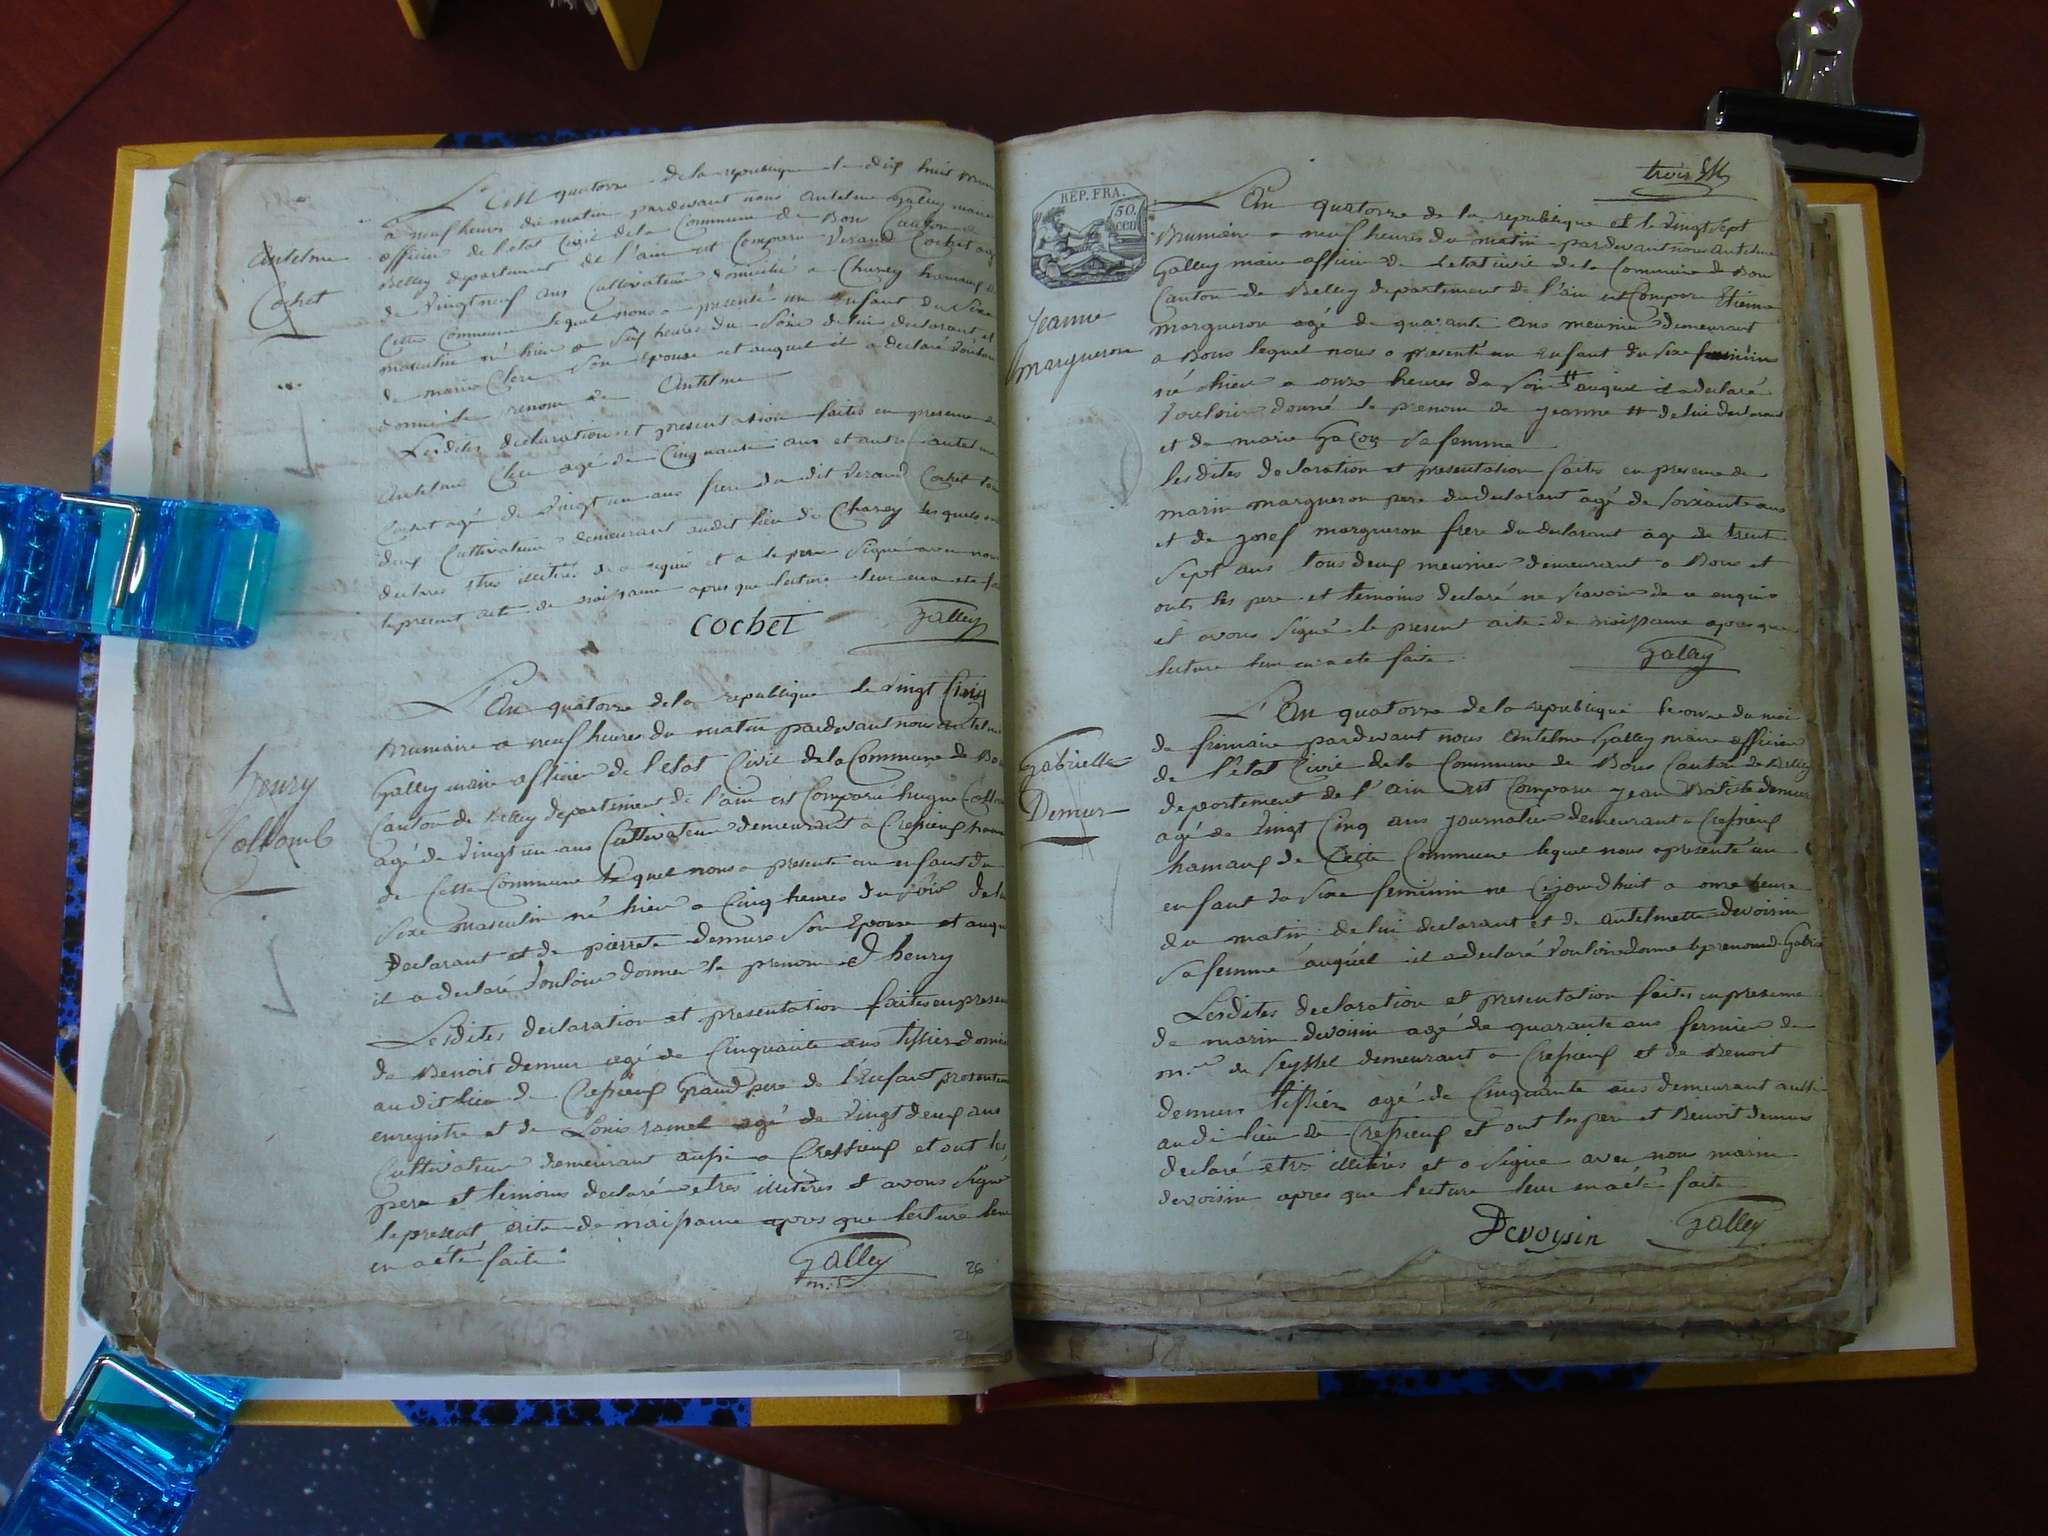 L'an quatorze de la republique le dix huit Brum
a neuf heures du matin pardevant nous Antelme Galley maire
officier de l'etat Civil de la Commune de Bon Canton de
Belley departement de l'ain est Comparu Verand Cochet agé
de Vingt neuf ans Cultivateur domicilié a Charey hameau de
Cette Commune lequel nous a presenté un Enfant du Sexe
masculin né hier a Six heures du Soir de lui declarant et
de marie Clerc Son Epouse et auquel il a declaré Vouloir
donner le prenom de Antelme
Antelme
Cochet
Lesdites declaration et presentation faites en presence de
Antelme Clerc agé de Cinquante ans et autre antelme
Cochet agé de Vingt un ans frere du dit Verand Cochet tous
deux Cultivateurs demeurant audit lieu de Charey lesquels ont
declaré etres illiteres de ce requis et a le pere Signé avec nous
le present acte de naissance apres que lecture leur en a ete fa
cochet Galley
L'an quatorze de la republique le vingt Cinq
Brumaire a neuf heures du matin pardevant nous antelme
Galley maire officier de l'etat Civil de la Commune de Bo
Canton de Belley departement de l'ain est Comparu hugue Collom
agé de vingt un ans Cultivateur demeurant a Cressieux hame
de Cette Commune lequel nous a presenté un enfant du
Sexe masculin né hier a Cinq heures du Soir de lui
Declarant et de pierrete demure Son Epouse et auqu
il a declaré Vouloir donner le prenom d'henry
henry
Collomb
Lesdites declaration et presentation faites en presen
de Benoit demur agé de Cinquante ans tissier domi
audit lieu de Cressieux Grand pere de l'Enfant presentem
enregistre et de Louis ramel agé de vingt deux ans
Cultivateur demeurant aussi a Cressieux et ont les
pere et temoins declaré etres illiteres et avons Signé
le present acte de naissance apres que lecture leur
en a été faite
Galley
m.re
26
trois
REP. FRA.
50.
cen
L'an quatorze de la republique et le vingt Sept
Brumaire a neuf heures du matin pardevant nous antelme
Galley maire officier de l'etat civil de la Commune de Bon
Canton de Belley departement de l'ain est Comparu Etienne
margueron agé de quarante ans meunier demeurant
a Bons lequel nous a presenté un enfant du Sexe feminin
né hier a onze heures du Soir # auquel il a declaré
Vouloir donné le prenom de jeanne # de lui declarant
et de marie Gacon Sa femme
Jeanne
margueron
lesdites declaration et presentation faites en presence de
marin margueron pere du declarant agé de Soixante ans
et de josef margueron frere du declarant agé de trente
Sept ans tous deux meunier demeurant a Bons et
onts les pere et temoins declaré ne Scavoir de ce enquis
et avons Signé le present acte de naissance apres que
lecture leur en a ete faite
Galley
L'an quatorze de la republique le onze du moi
de frimaire pardevant nous Antelme Galley maire officier
de l'état Civil de la Commune de Bons Canton de Belley
departement de l'ain est Comparu jean Batiste demur
agé de Vingt Cinq ans journalier demeurant a Cressieux
hamaux de Cette Commune lequel nous a presenté un
enfant du Sexe feminin né Cejourdhuit a onze heure
du matin de lui declarant et de antelmette devoisin
Sa femme auquel il a declaré Vouloir donné le prenom de Gabrie
Gabrielle
Demur
Lesdites declaration et presentation faites en presence
de marin devoisin agé de quarante ans fermier de
m.r du Seyssel demeurant a Cressieux et de Benoit
demur tissier agé de Cinquante ans demeurant aussi
audi lieu de Cressieux et ont le pere et Benoit demur
declaré etre illitérés et a Signé avec nous marin
devoisin apres que lecture leur en a été faite
Devoysin Galley